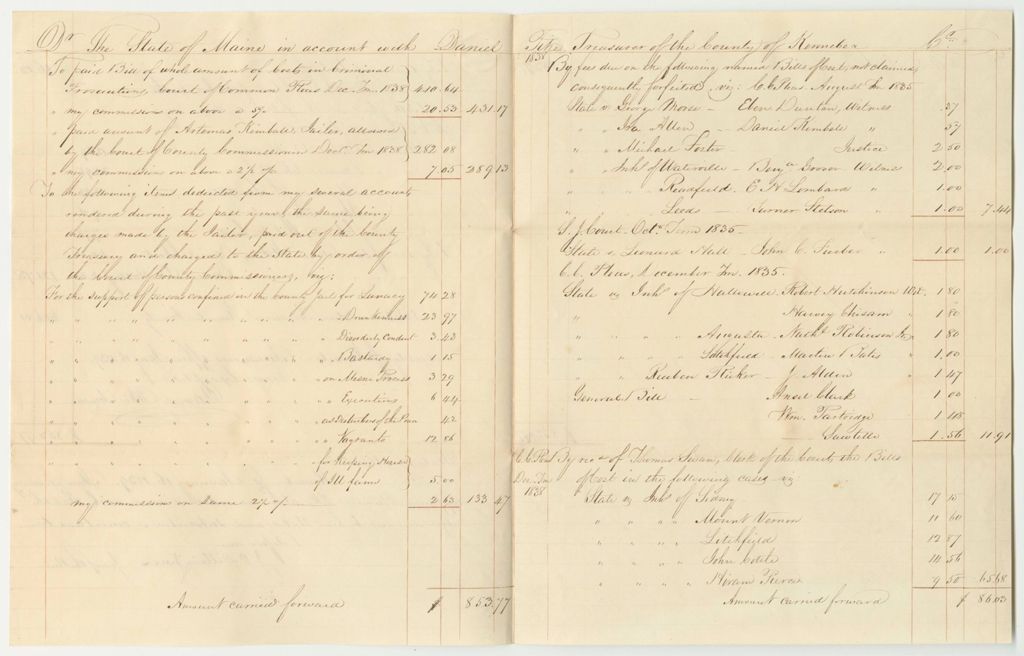 Dr The State of Maine in account with Daniel
To paid Bill of whole amount of Costs in Criminal
Prosecutions, Court of Common Pleas Dec. Tm. 1838 410.64
" my commission on above a 5% 20.53 431.17
" paid amount of Artemas Kimball, Jailer, allowed
by the Court of County Commissioners Decr. Tm 1838 282.08
" my commission on above 2 1/2 % 7.05 289.13
To the following items deducted from my several accounts
rendered during the past year, the same being
charges made by the Jailer, paid out of the County
Treasury and charged to the State by order of
the Court of County Commissioners, viz:
For the support of persons confined in the County Jail for Lunacy 74 28
" " " " " " " " " " Drunkenness 23 97
" " " " " " " " " " Disorderly Conduct 3 43
" " " " " " " " " " Bastardy 1 15
" " " " " " " " " on Mesne Process 3 79
" " " " " " " " " " Executions 6 44
" " " " " " " " " as Disturbers of the Peace 42
" " " " " " " " " " Vagrants 12 86
" " " " " " " " for keeping Houses
of Ill fame 5.00
my commission on same 2 % 2 63 133 47
Amount carried forward $ 853.77
Pike Treasurer of the County of Kennebec Cr.
1838 By fees due on the following named Bills of Cost, not claimed,
consequently forfeited, viz: C.C. Pleas, August Tm 1835
State v George Morse - Eben Dunton, Witness .37
" " Ira Allen - Daniel Kimball " 37
" " Michael Foster - Justice 2 50
" " Inhs of Waterville - Benja Witness 2.00
" " Readfield, E H Lombard " 1.00
" " Leeds - Turner Stetson " 1.00 7.44
S. J. Court, Octr. Term 1835 -
State v. Leonard Hall - John C. " 1.00 1.00
C.C. Pleas, December Tm. 1835.
State vs Inhs of Hallowell Robert Hutchinson Wit. 1.80
" Harvey Chisam " 1 80
" " " " Augusta Nathl Robinson Jr 1.80
" " " Litchfield - Martin 1.00
" " Reuben Ricker - J Alden 1.47
General Bill - Ansel Clark 1 00
" Wm. Partridge 1.48
" Sawtelle 1.56 11.91
C.C. Pleas By recd of Thomas Clerk of the Courts, the Bills
Dec. Tm of Cost in the following cases viz
1838 State vs Inhs of Sidney 17 15
" " " " Mount Vernon 11 60
" " " " Litchfield 12 87
" " " " John 14 56
" " " " Hiram Pierce 9 50 65.68
Amount carried forward $ 86.03